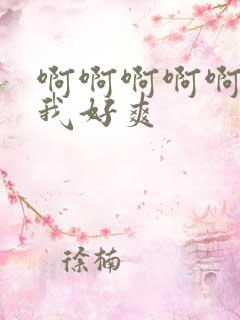 啊啊啊啊啊
我好爽
徐楠